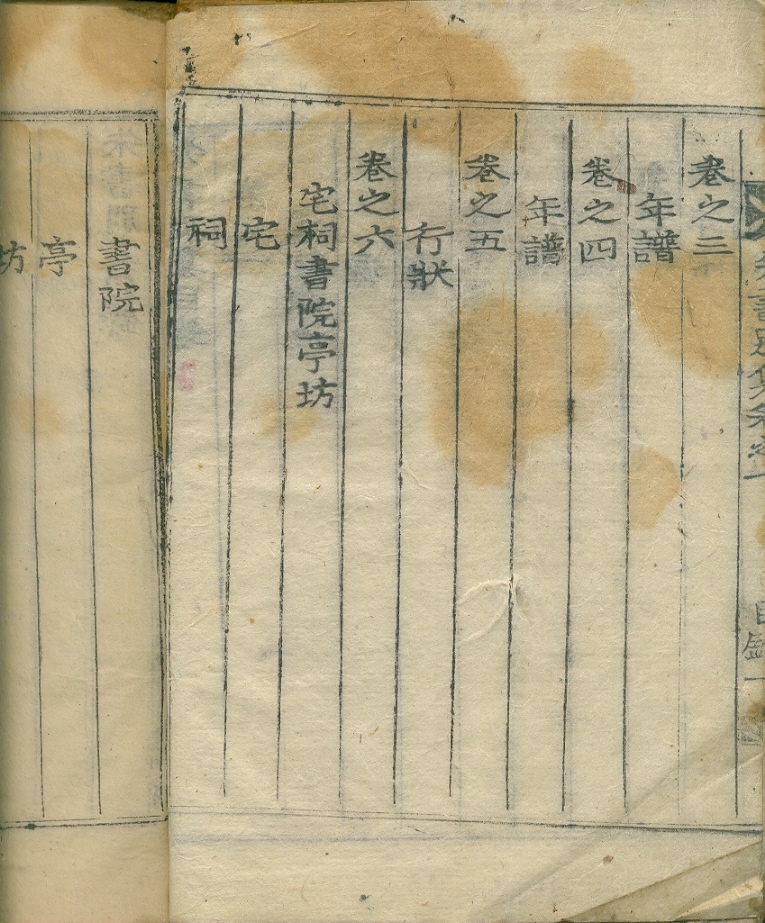 卷之三
年譜
卷之四
年譜
卷之五
行狀
卷之六
宅祠書院亭坊
宅
祠
書院
亭
坊